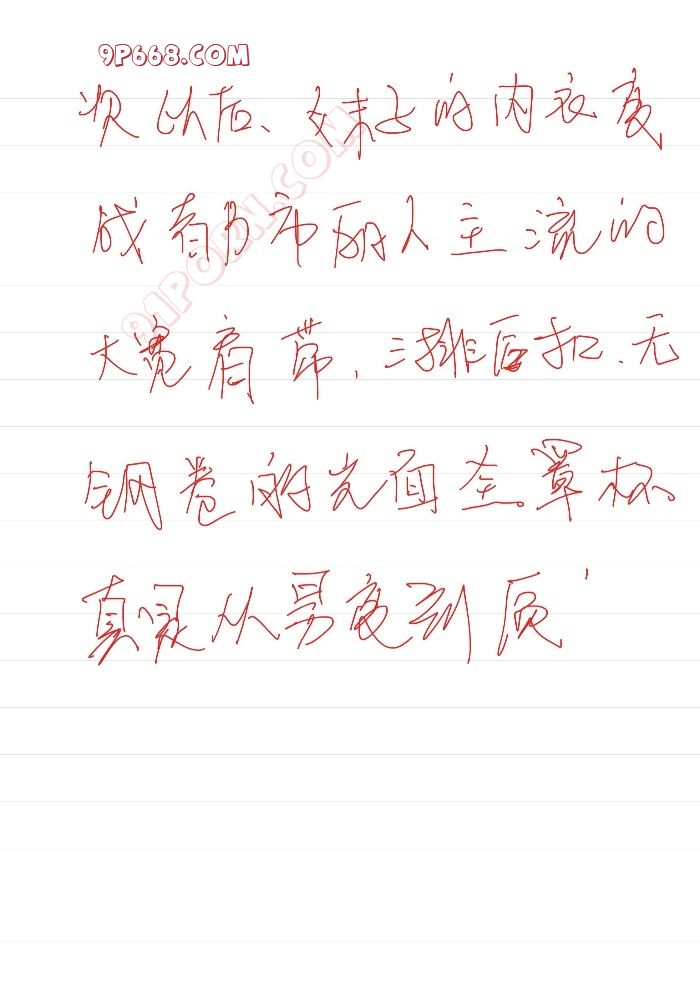 9P668.COM
次以后、妹子的内衣变
成有都市丽人主流的
大宽肩带，三排后扣、无
钢卷的光面全罩杯。
真是从量变到质
91PORN.COM